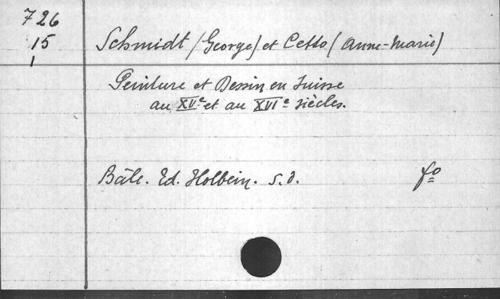 726
15
1
Schmidt (George) et Cetto (Anne-Marie)
Peinture et Dessin en Suisse
au XVe et au XVIe siècles.
Bâle. Ed. Holbein. s.d. fo